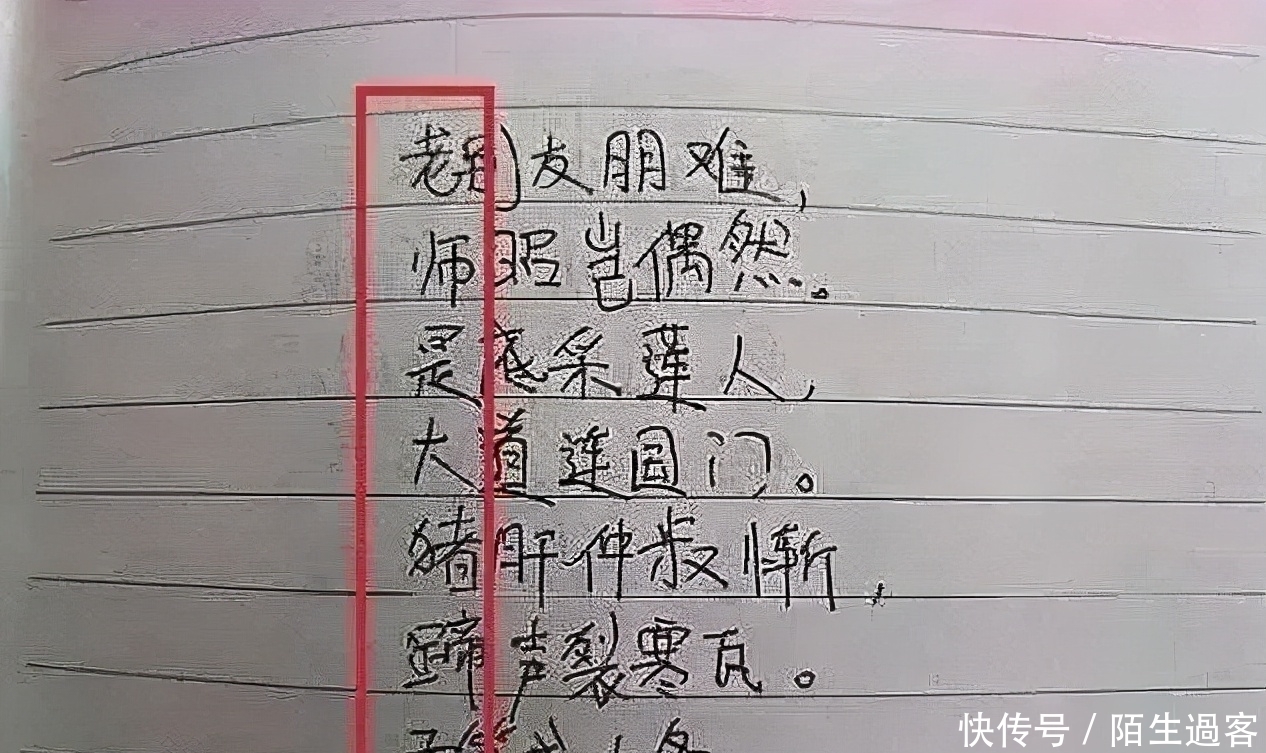 老别友朋难，
师昭岂偶然。
是底采莲人，
大道莲圆门。
猪肝仲叔惭，
蹄声裂寒瓦。
快传号 / 陌生過客